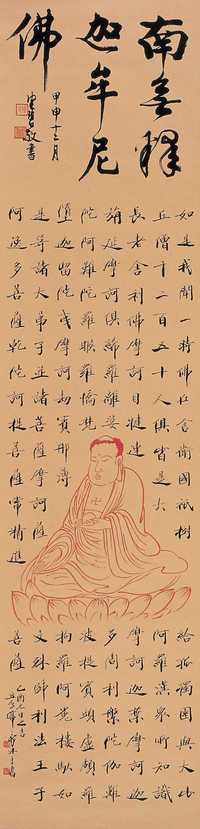 南無釋
迦牟尼
佛
甲申十二月
如是我聞一時佛在舍衛國祇樹給孤獨園與大比
丘僧千二百五十人俱皆是大阿羅漢眾所知識
長老舍利弗摩訶目犍連摩訶迦葉摩訶迦
旃延摩訶俱絺羅離婆多周利槃陀伽難
陀阿難陀羅睺羅憍梵波提賓頭盧頗羅
墮迦留陀夷摩訶劫賓那薄拘羅阿㝹樓馱如
是等諸大弟子並諸菩薩摩訶薩文殊師利法王子
阿逸多菩薩乾陀訶提菩薩常精進菩薩